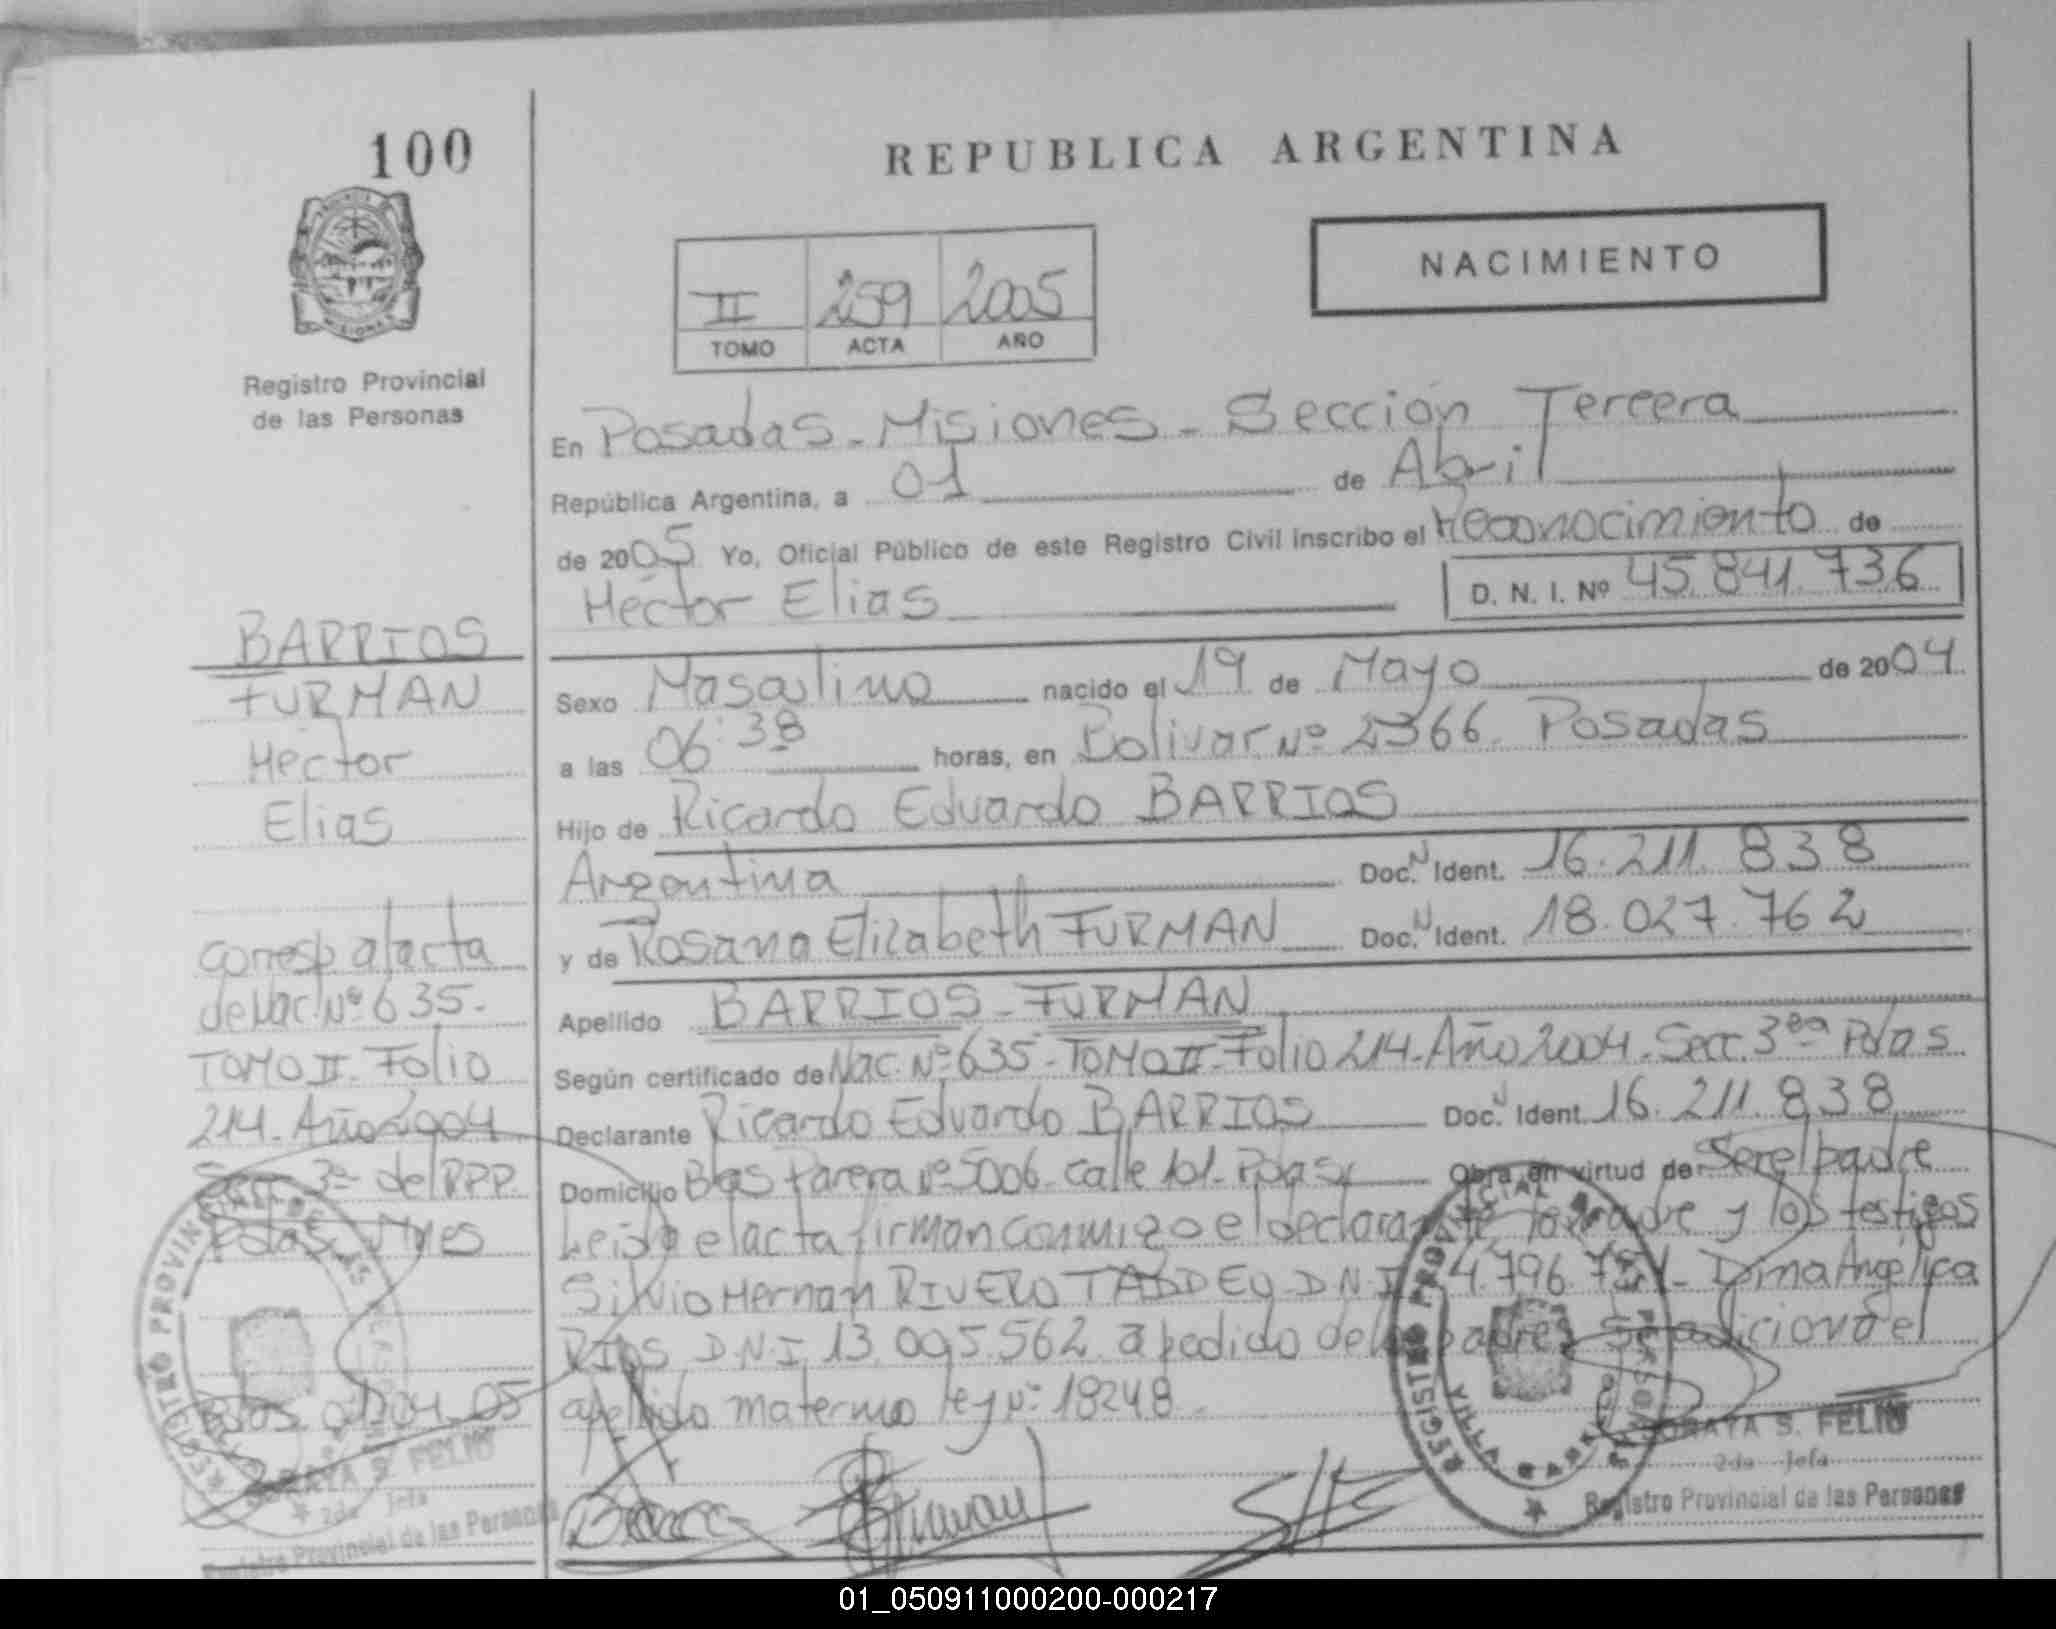 100
REPUBLICA ARGENTINA
NACIMIENTO
II 259 2005
TOMO ACTA AÑO
MISIONES
Registro Provincial
de las Personas
En Posadas - Misiones - Sección Tercera
República Argentina, a 01 de Abril
de 2005 Yo, Oficial Público de este Registro Civil inscribo el Reconocimiento de
Héctor Elias D. N. I. Nº 45.841.736
BARRIOS
FURMAN
Hector
Elias
Sexo Masculino nacido el 19 de Mayo de 2004
a las 06:38 horas, en Bolivar Nº 2366. Posadas
Hijo de Ricardo Eduardo BARRIOS
Argentina Doc. N Ident. 16.211.838
y de Rosana Elizabeth FURMAN Doc. N Ident. 18.027.762
Apellido BARRIOS - FURMAN
Según certificado de Nac. Nº 635 - TOMO II - Folio 214 - Año 2004. Secc. 3era Pdas
Declarante Ricardo Eduardo BARRIOS Doc. N Ident. 16.211.838
Domicilio Blas Parera Nº 5006. calle 101. Pdas Obra en virtud de Ser el padre
Leida el acta firman conmigo el declarante la madre y los testigos
Silvio Hernan RIVERO TADDEO D.N.I. Dina Angélica
RIOS D.N.I. 13.095.562. a pedido de los padres se adicionó el
apellido materno ley Nº 18248
corresp al acta
de Nac. Nº 635.
TOMO II. Folio
214. Año 2004
Secc. 3ª del RPP.
Pdas. Mnes
Pdas 01.04.05
REGISTRO PROVINCIAL DE LAS PERSONAS
SORAYA S. FELIU
2da Jefa
Registro Provincial de las Personas
REGISTRO PROVINCIAL DE LAS PERSONAS
VILLA
SORAYA S. FELIU
2da Jefa
Registro Provincial de las Personas
01_050911000200-000217